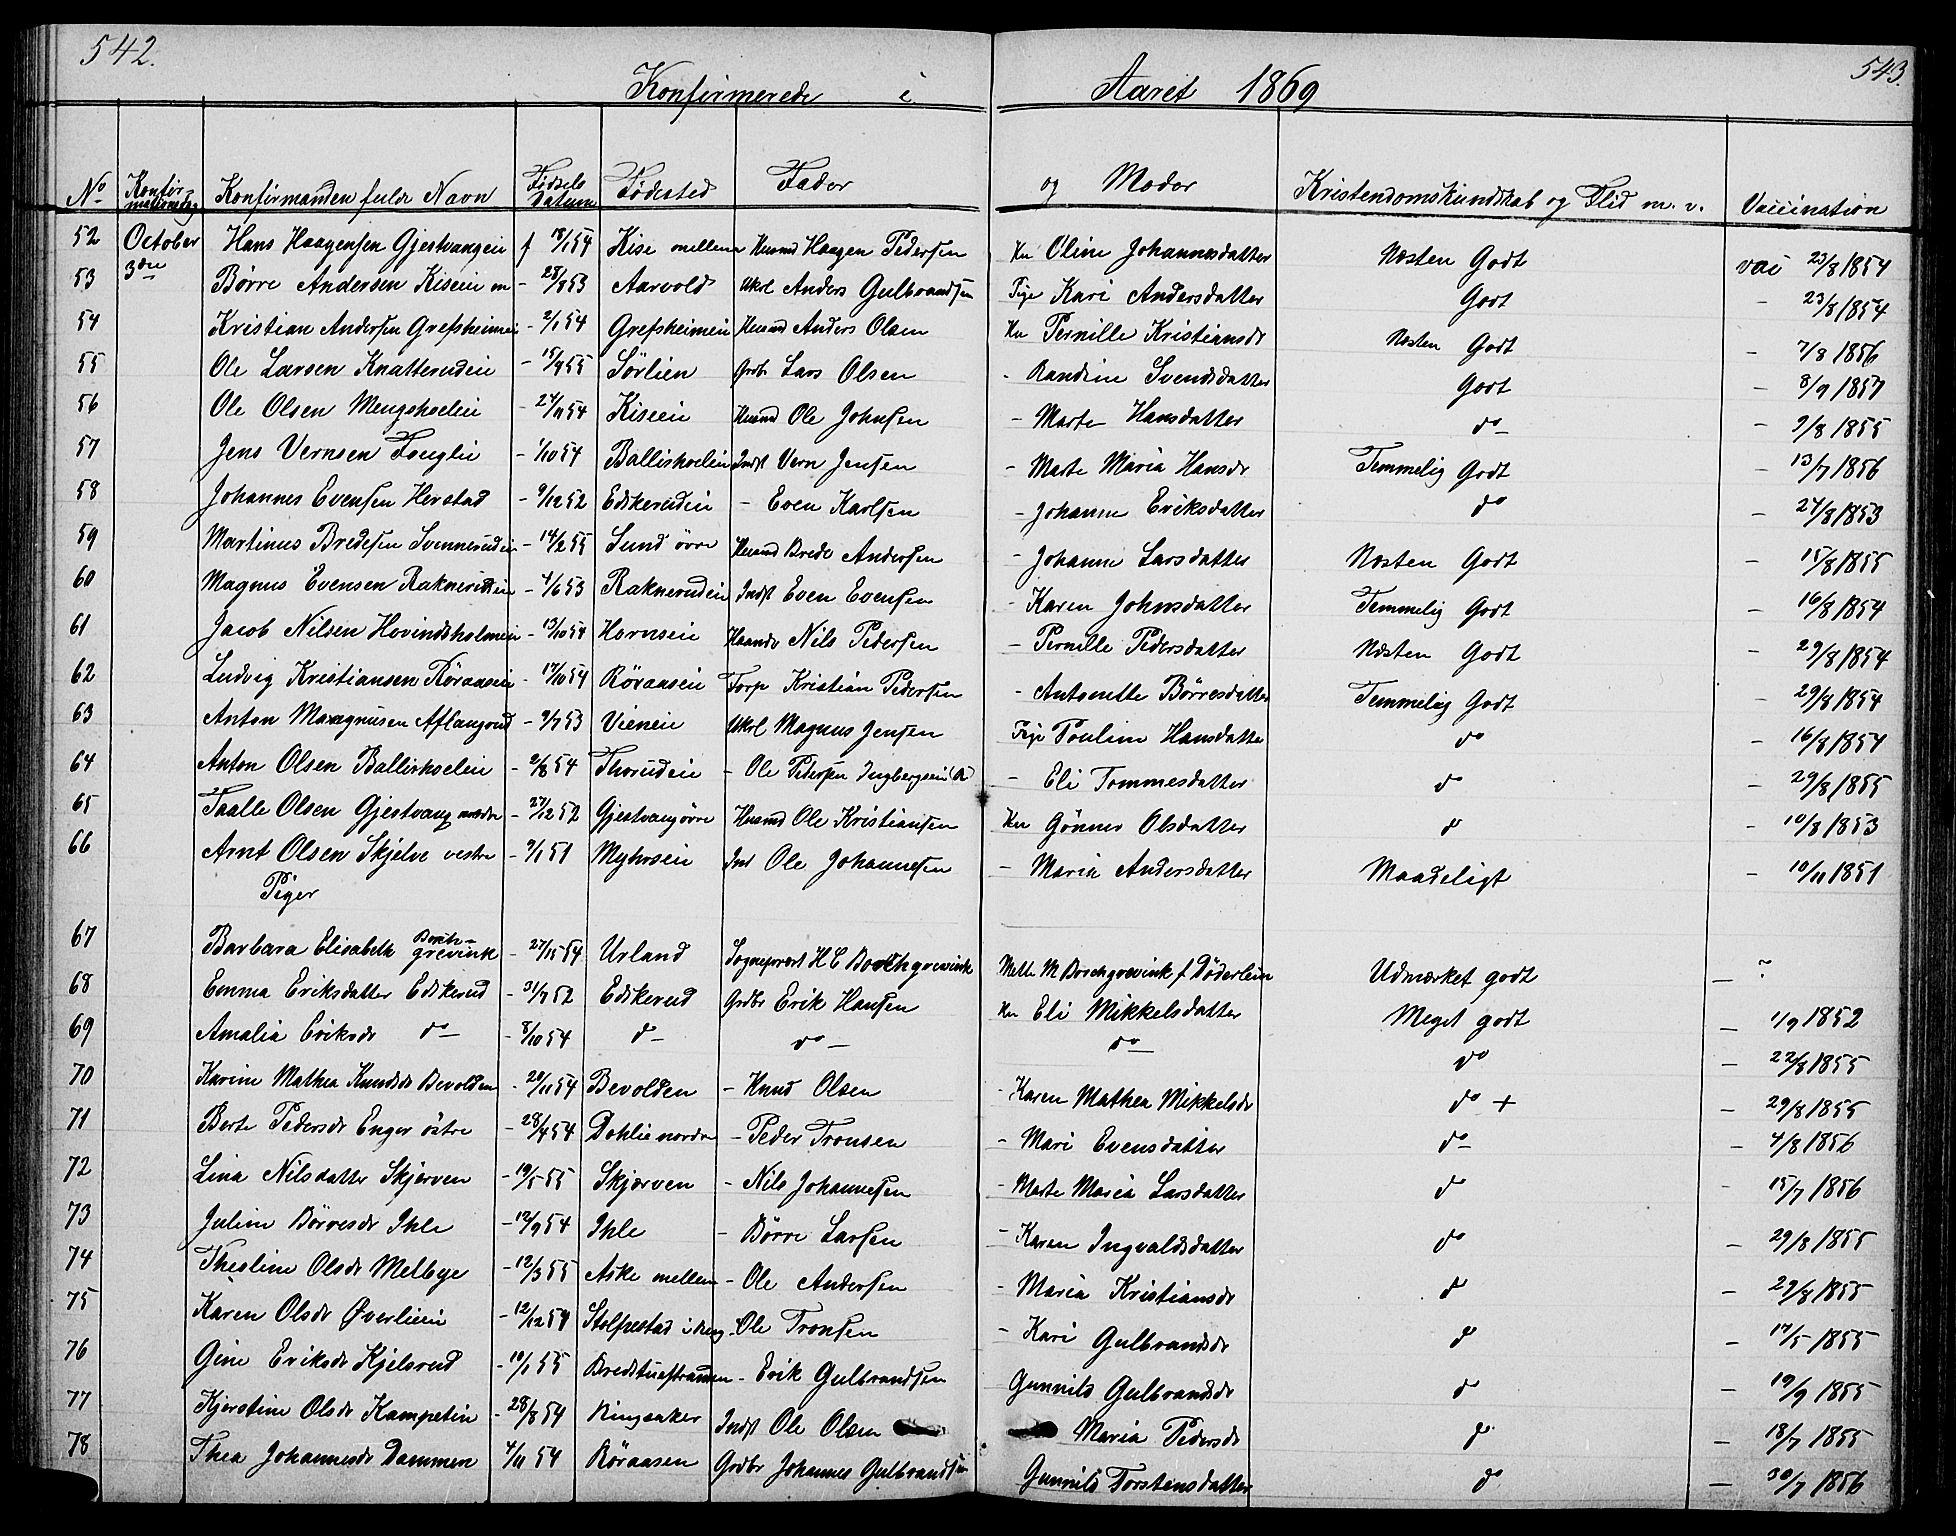 542. 543.
Konfirmerede i Aaret 1869
No Konfirmationsdag Konfirmanden fulde Navn Fødsels Datum Fødested Fader og Moder Kristendomskundskab og Flid m. v. Vaccination
52 October 3die Hans Haagensen Gjestvangeie f 18/1 54 Kise mellem Husmd Haagen Pedersen Ku Oline Johannesdatter Næsten Godt vac 23/8 1854
53 Børre Andersen Kiseie m - 28/8 53 Aarvold Ukrl Anders Gulbrandsen Pige Kari Andersdatter Godt - 23/8 1854
54 Kristian Andersen Grefsheimeie - 2/1 54 Grefsheimeie Husmd Anders Olsen Ku Pernille Kristiansdr Næsten Godt - 7/8 1856
55 Ole Larsen Knatterudeie - 15/9 55 Sørlien Grdbr Lars Olsen - Randine Svendsdatter Godt - 8/9 1857
56 Ole Olsen Mengshoeleie - 24/11 54 Kiseeie Husmd Ole Johnsen - Marte Hansdatter do - 9/8 1855
57 Jens Vernsen Fouglie - 1/10 54 Ballishoeleie Indst Vern Jensen - Marte Maria Hansdr Temmelig Godt - 13/7 1856
58 Johannes Evensen Herstad - 9/12 52 Edskerudeie - Even Karlsen - Johanne Eriksdatter do - 24/8 1853
59 Martinus Bredesen Svennerudeie - 14/2 55 Sund övre Husmd Brede Andersen - Johanne Larsdatter Næsten Godt - 15/8 1855
60 Magnus Evensen Raknerudeie - 4/6 53 Raknerudeie Indst Even Evensen - Karen Johnsdatter Temmelig Godt - 16/8 1854
61 Jacob Nilsen Hovindsholmeie - 13/10 54 Hornseie Haandv Nils Pedersen - Pernille Pedersdatter Næsten Godt - 29/8 1854
62 Ludvig Kristiansen Røraaseie - 17/10 54 Röraaseie Torp Kristian Pedersen - Antonette Børresdatter Temmelig Godt - 29/8 1854
63 Anton Magnusen Aflangrud - 9/7 53 Vieneie Ukrl Magnus Jensen Pige Pouline Hansdatter do - 16/8 1854
64 Anton Olsen Ballishoeleie - 2/8 54 Thorudeie - Ole Pedersen Ingbergseie - Eli Tommesdatter do - 29/8 1855
65 Taalle Olsen Gjestvang nordre - 27/12 52 Gjestvang övre Husmd Ole Kristiansen Ku Gönner Olsdatter do - 10/8 1853
66 Arnt Olsen Skjelve vestre - 9/1 51 Myhrseie Ind Ole Johannesen - Maria Andersdatter Maadeligt - 10/11 1851
Piger
67 Barbara Elisabeth Borchgrevink - 27/11 54 Urland Sogneprest H C Borchgrevink Mette M Borchgrevink f Döderlein Udmærket godt - ?
68 Emma Eriksdatter Edskerud - 31/7 52 Edskerud Grdbr Erik Hansen Ku Eli Mikkelsdatter Meget godt - 1/9 1852
69 Amalia Eriksdr do - 8/10 54 do do do do - 22/8 1855
70 Karine Mathea Knudsdr Bevolden - 20/11 54 Bevolden - Knud Olsen - Karen Mathea Mikkelsdr do + - 29/8 1855
71 Berte Pedersdr Enger östre - 28/4 54 Dohlie nordre - Peder Tronsen - Mari Evensdatter do - 4/8 1856
72 Lina Nilsdatter Skjerven - 19/5 55 Skjærven - Nils Johannesen - Marte Maria Larsdatter do - 15/7 1856
73 Juline Börresdr Ihle - 12/9 54 Ihle - Börre Larsen - Karen Ingvaldsdatter do - 29/8 1855
74 Theoline Olsdr Melbye - 12/3 55 Aske mellem - Ole Andersen - Maria Kristiansdr do - 29/8 1855
75 Karen Olsdr Øverlieie - 12/12 54 Stolpestad i Ring - Ole Tronsen - Kari Gulbrandsdr do - 17/5 1855
76 Gine Eriksdr Kjelsrud - 10/1 55 Bredstuestranden - Erik Gulbrandsen Gunnild Gulbrandsdr do - 19/9 1855
77 Kjerstine Olsdr Kampetin - 28/8 54 Ringsaker Indst Ole Olsen Maria Pedersdr do - 18/7 1855
78 Thea Johannesdr Dammen 4/11 54 Röraasen Grdbr Johannes Gulbrandsen Gunnild Torstensdatter do - 30/7 1856